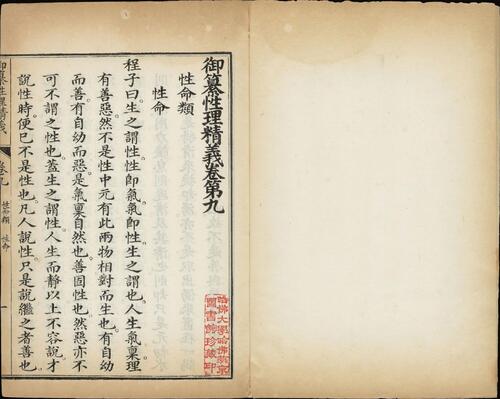 御纂性理精義卷第九
性命類
性命
程子曰生之謂性性即氣氣即性生之謂也人生氣稟理
有善惡然不是性中元有此兩物相對而生也有自幼
而善有自幼而惡是氣稟自然也善固性也然惡亦不
可不謂之性也蓋生之謂性人生而靜以上不容說才
說性時便已不是性也凡人說性只是說繼之者善也
御纂性理精義
卷九
性命類
性命
一
哈佛大學哈佛燕京
圖書館珍藏印